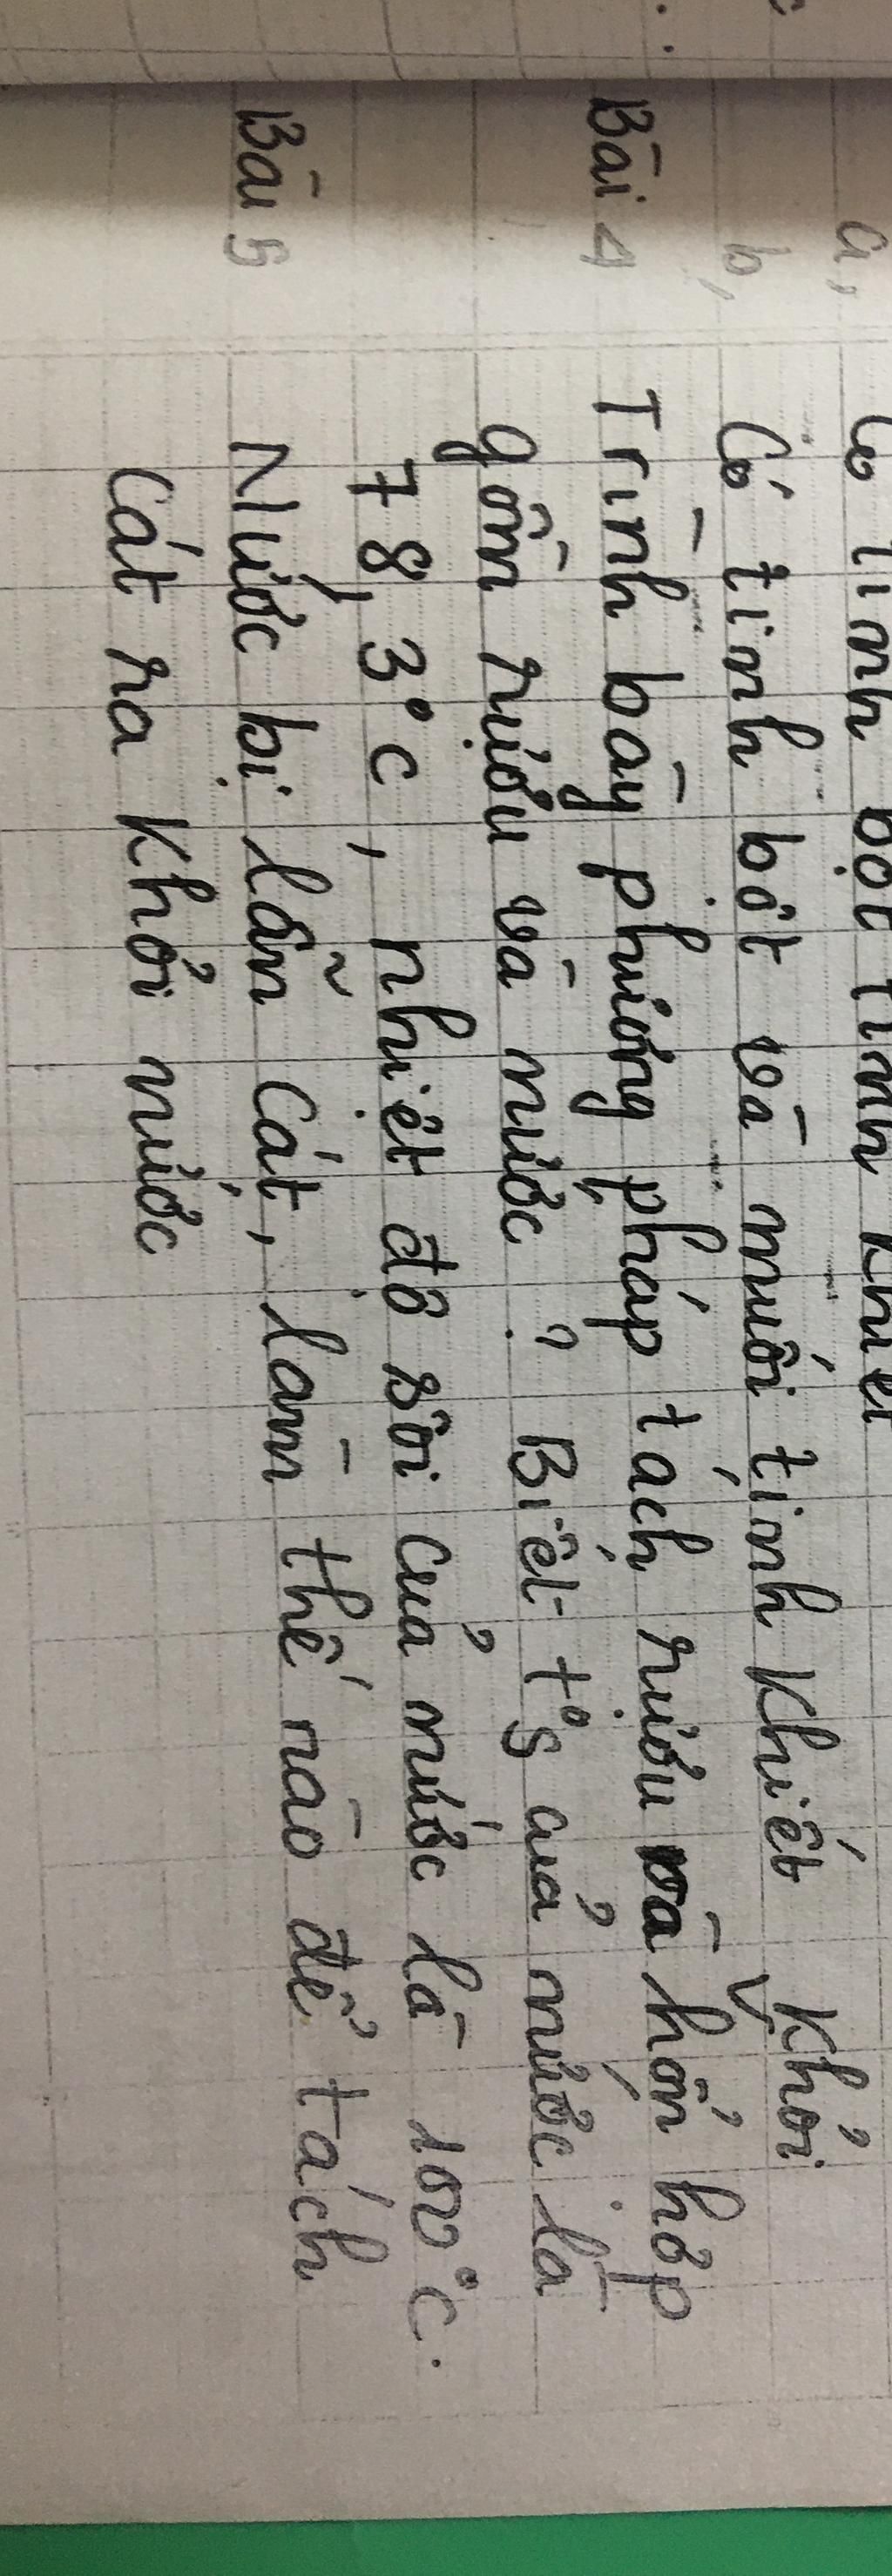 a, Có tinh bột tinh khiết
b, Có tinh bột và muối tinh khiết
khỏi
Bài 4 Trình bày phương pháp tách rượu và hổn hợp
gồm rượu và nước ? Biết t°s của nước là
78,3°C, nhiệt độ sôi của nước là 100°C.
Bài 5 Nước bị lẫn cát, làm thế nào để tách
cát ra khỏi nước